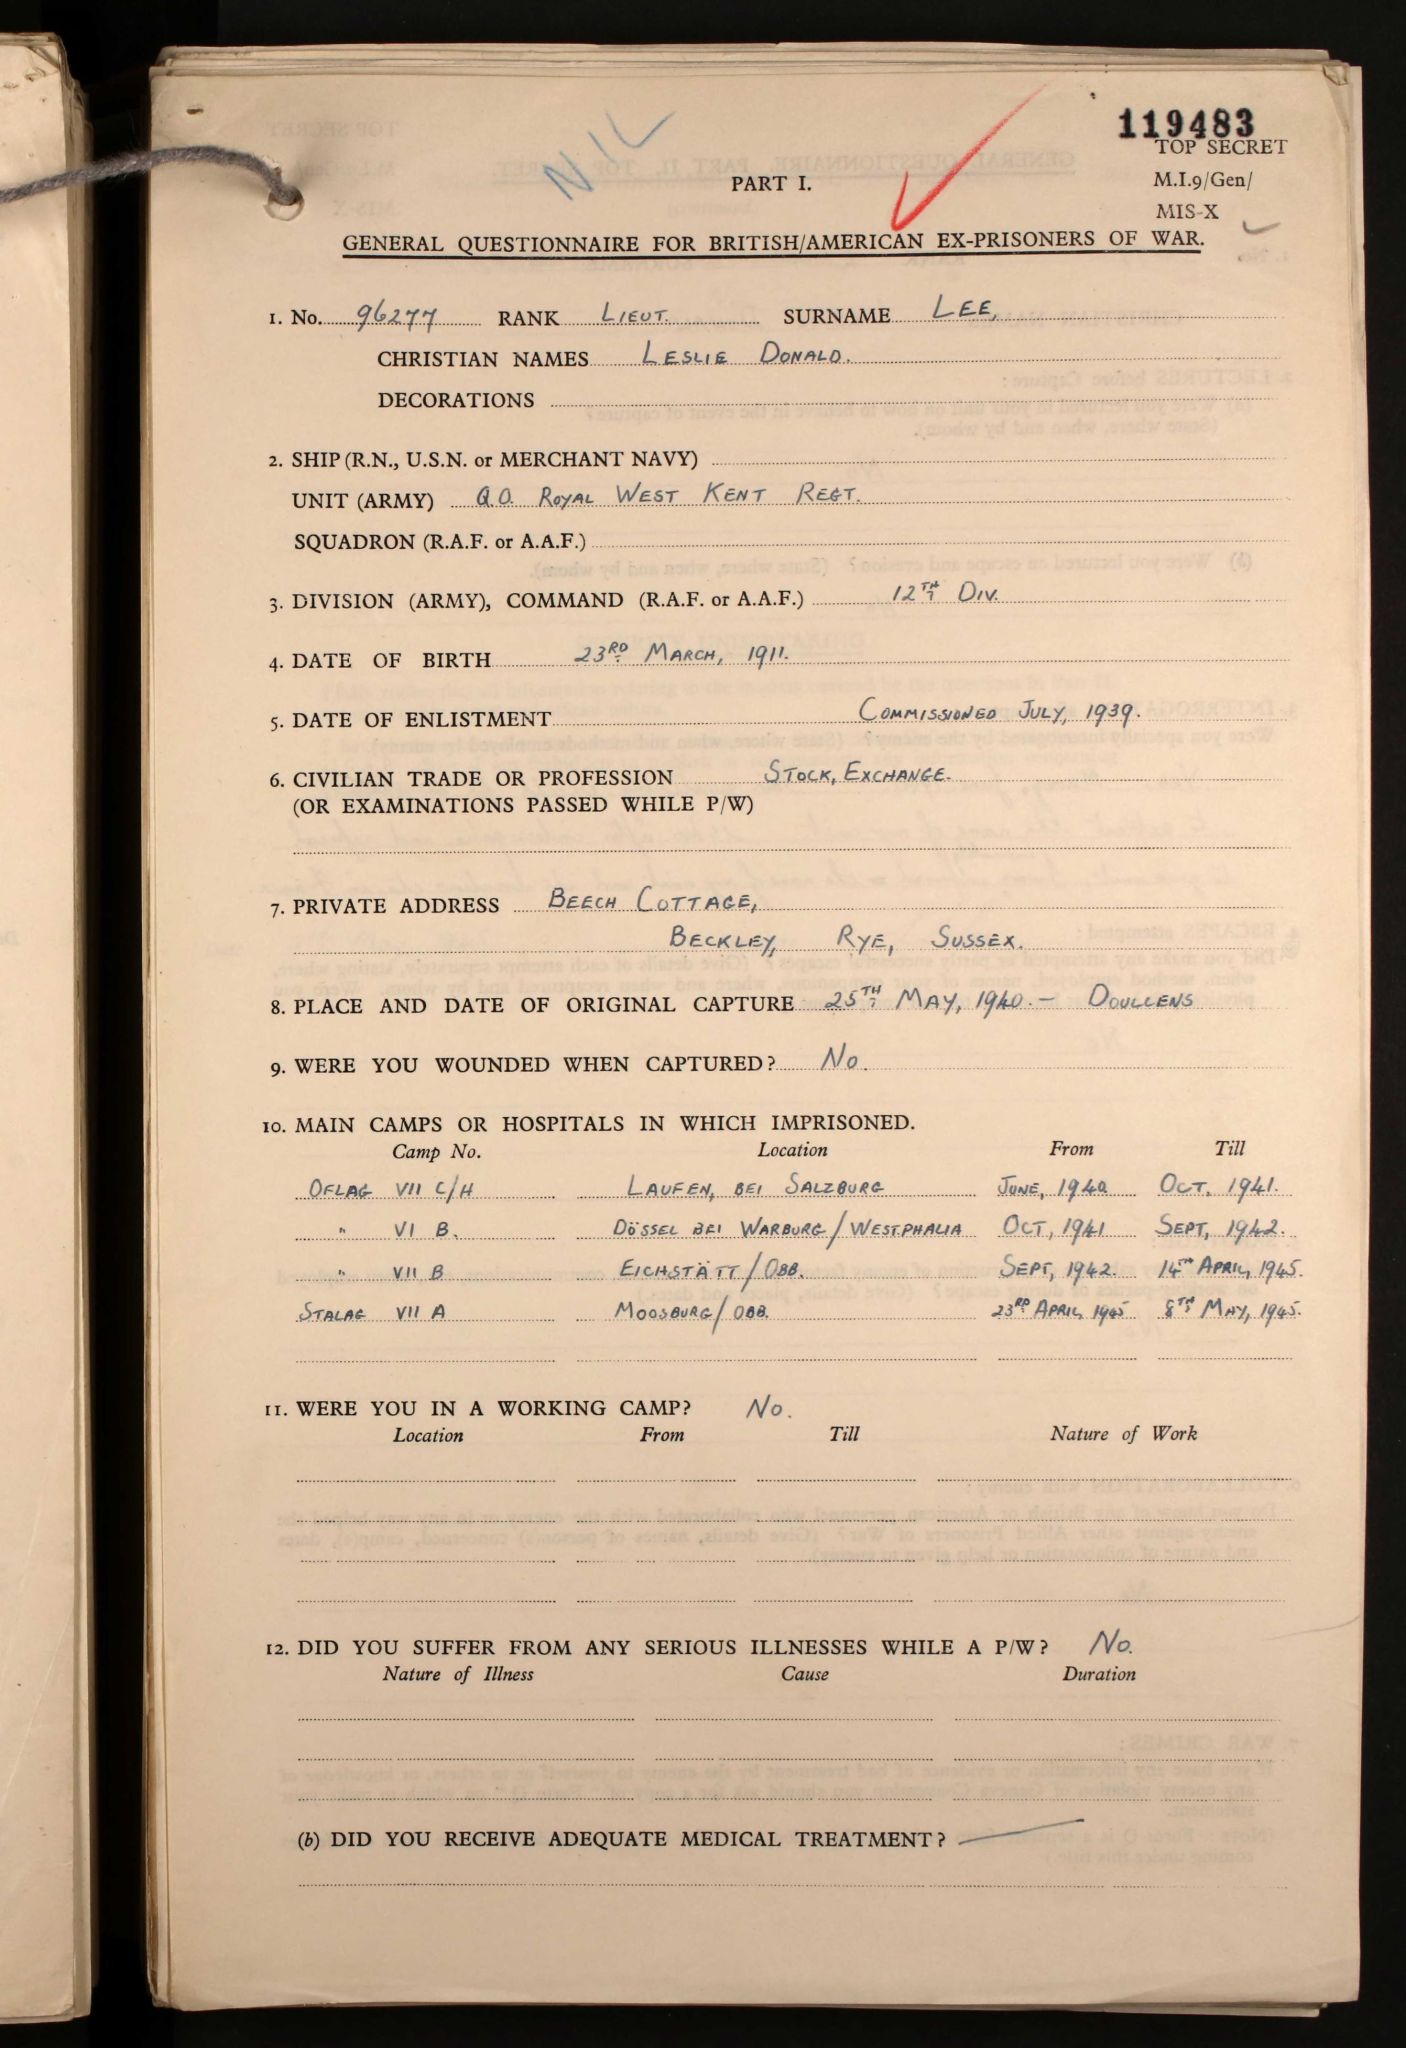 NIL
119483
TOP SECRET
PART I.
M.I.9/Gen/
MIS-X
GENERAL QUESTIONNAIRE FOR BRITISH/AMERICAN EX-PRISONERS OF WAR.
1. No. 96277 RANK LIEUT. SURNAME LEE,
CHRISTIAN NAMES LESLIE DONALD.
DECORATIONS
2. SHIP (R.N., U.S.N. or MERCHANT NAVY)
UNIT (ARMY) Q.O. ROYAL WEST KENT REGT.
SQUADRON (R.A.F. or A.A.F.)
3. DIVISION (ARMY), COMMAND (R.A.F. or A.A.F.) 12TH DIV.
4. DATE OF BIRTH 23RD MARCH, 1911.
5. DATE OF ENLISTMENT COMMISSIONED JULY, 1939.
6. CIVILIAN TRADE OR PROFESSION STOCK, EXCHANGE.
(OR EXAMINATIONS PASSED WHILE P/W)
7. PRIVATE ADDRESS BEECH COTTAGE,
BECKLEY, RYE, SUSSEX.
8. PLACE AND DATE OF ORIGINAL CAPTURE 25TH MAY, 1940. – DOULLENS
9. WERE YOU WOUNDED WHEN CAPTURED? NO.
10. MAIN CAMPS OR HOSPITALS IN WHICH IMPRISONED.
Camp No. Location From Till
OFLAG VII C/H LAUFEN, BEI SALZBURG JUNE, 1940 OCT. 1941.
" VI B. DÖSSEL BEI WARBURG/WESTPHALIA OCT, 1941 SEPT, 1942.
" VII B EICHSTÄTT/OBB. SEPT, 1942. 14TH APRIL, 1945.
STALAG VII A MOOSBURG/OBB. 23RD APRIL, 1945 8TH MAY, 1945.
11. WERE YOU IN A WORKING CAMP? NO.
Location From Till Nature of Work
12. DID YOU SUFFER FROM ANY SERIOUS ILLNESSES WHILE A P/W? NO.
Nature of Illness Cause Duration
(b) DID YOU RECEIVE ADEQUATE MEDICAL TREATMENT? —